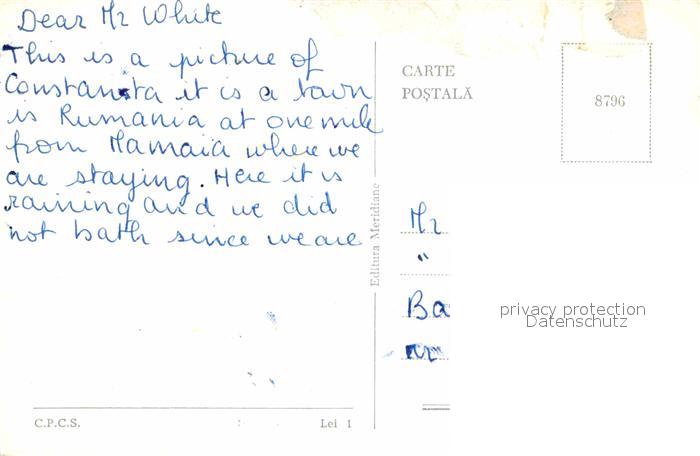 Dear Mr White
This is a picture of
Constansta it is a town
is Rumania at one mile
from Mamaia where we
are staying. Here it is
raining and we did
not bath since we are
CARTE
POȘTALĂ
8796
Editura Meridiane
Mr
"
Ba
privacy protection
Datenschutz
C.P.C.S.
Lei 1